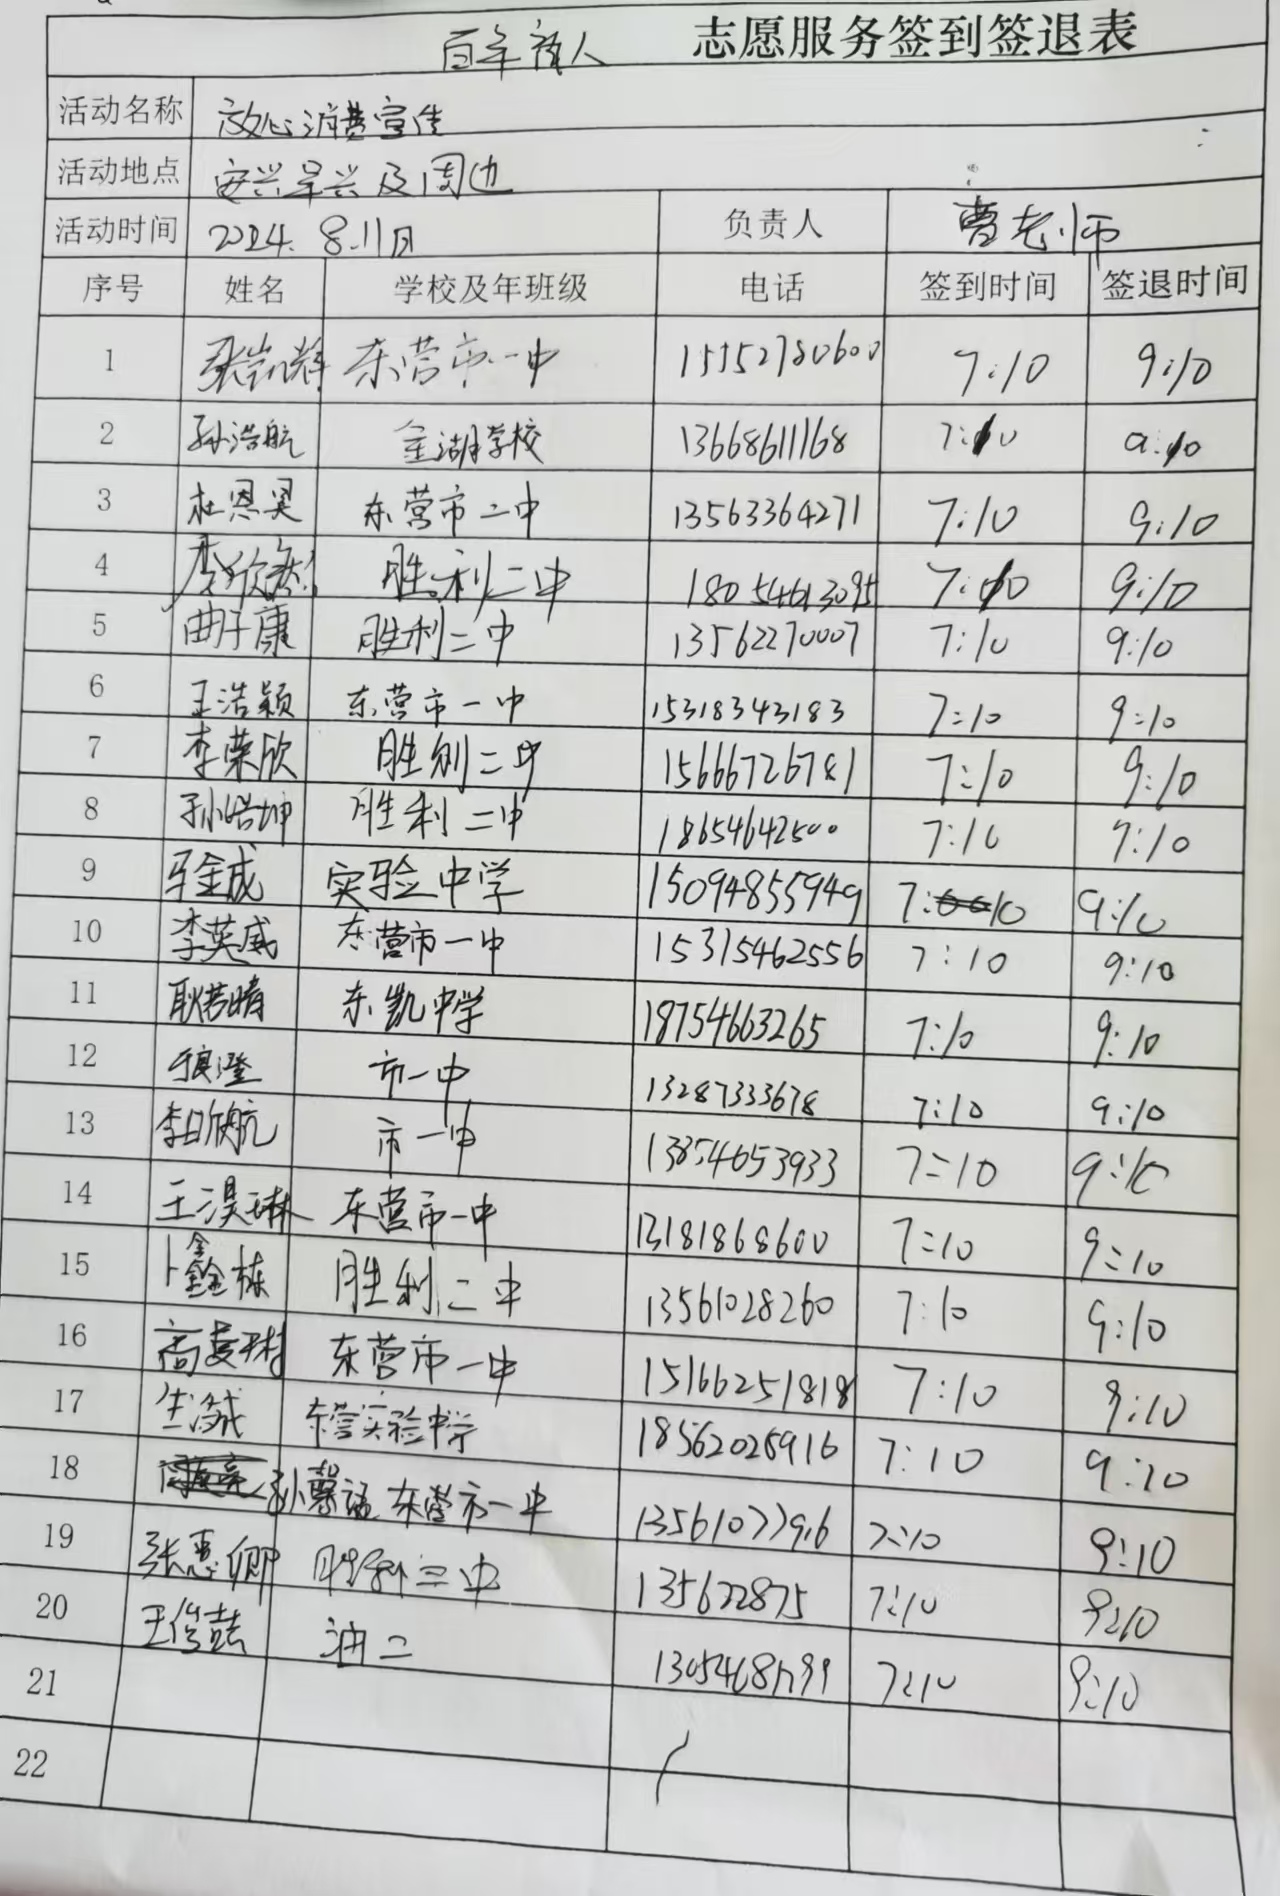 百年 人 志愿服务签到签退表
活动名称 放心消费宣传
活动地点 安兴早兴及周边
活动时间 2024. 8.11日 负责人 曹老师
序号 姓名 学校及年班级 电话 签到时间 签退时间
1 张凯辉 东营市一中 15152780600 7:10 9:10
2 孙浩航 金湖学校 13668611168 7:10 9:10
3 杜恩昊 东营市二中 13563364271 7:10 9:10
4 李欣 胜利二中 18054613095 7:10 9:10
5 曲子康 胜利二中 13562270007 7:10 9:10
6 王浩颖 东营市一中 15318343183 7:10 9:10
7 李荣欣 胜利二中 15666726781 7:10 9:10
8 孙皓坤 胜利二中 18654642500 7:10 9:10
9 金成 实验中学 15094855949 7:10 9:10
10 李英威 东营市一中 15315462556 7:10 9:10
11 耿若晴 东凯中学 18754663265 7:10 9:10
12 澄 市一中 13287333678 7:10 9:10
13 李昕航 市一中 13854653933 7:10 9:10
14 王淏琳 东营市一中 13181868600 7:10 9:10
15 卜鑫栋 胜利二中 13561028260 7:10 9:10
16 高 东营市一中 15166251818 7:10 9:10
17 生 东营实验中学 18562025916 7:10 9:10
18 孙馨 东营市一中 13561077916 7:10 9:10
19 张惠卿 胜利二中 135622875 7:10 9:10
20 王俊喆 油二 7:10 9:10
21
22